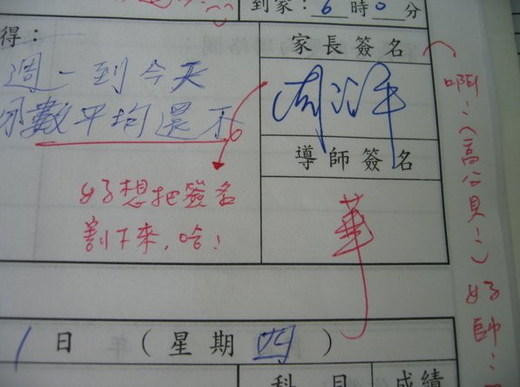 到家：6時0分
得：
週一到今天
分數平均還不
好想把簽名
割下來，哈！
家長簽名
導師簽名
華
啊…(高分貝…)好帥…
日(星期四)
科目 成績